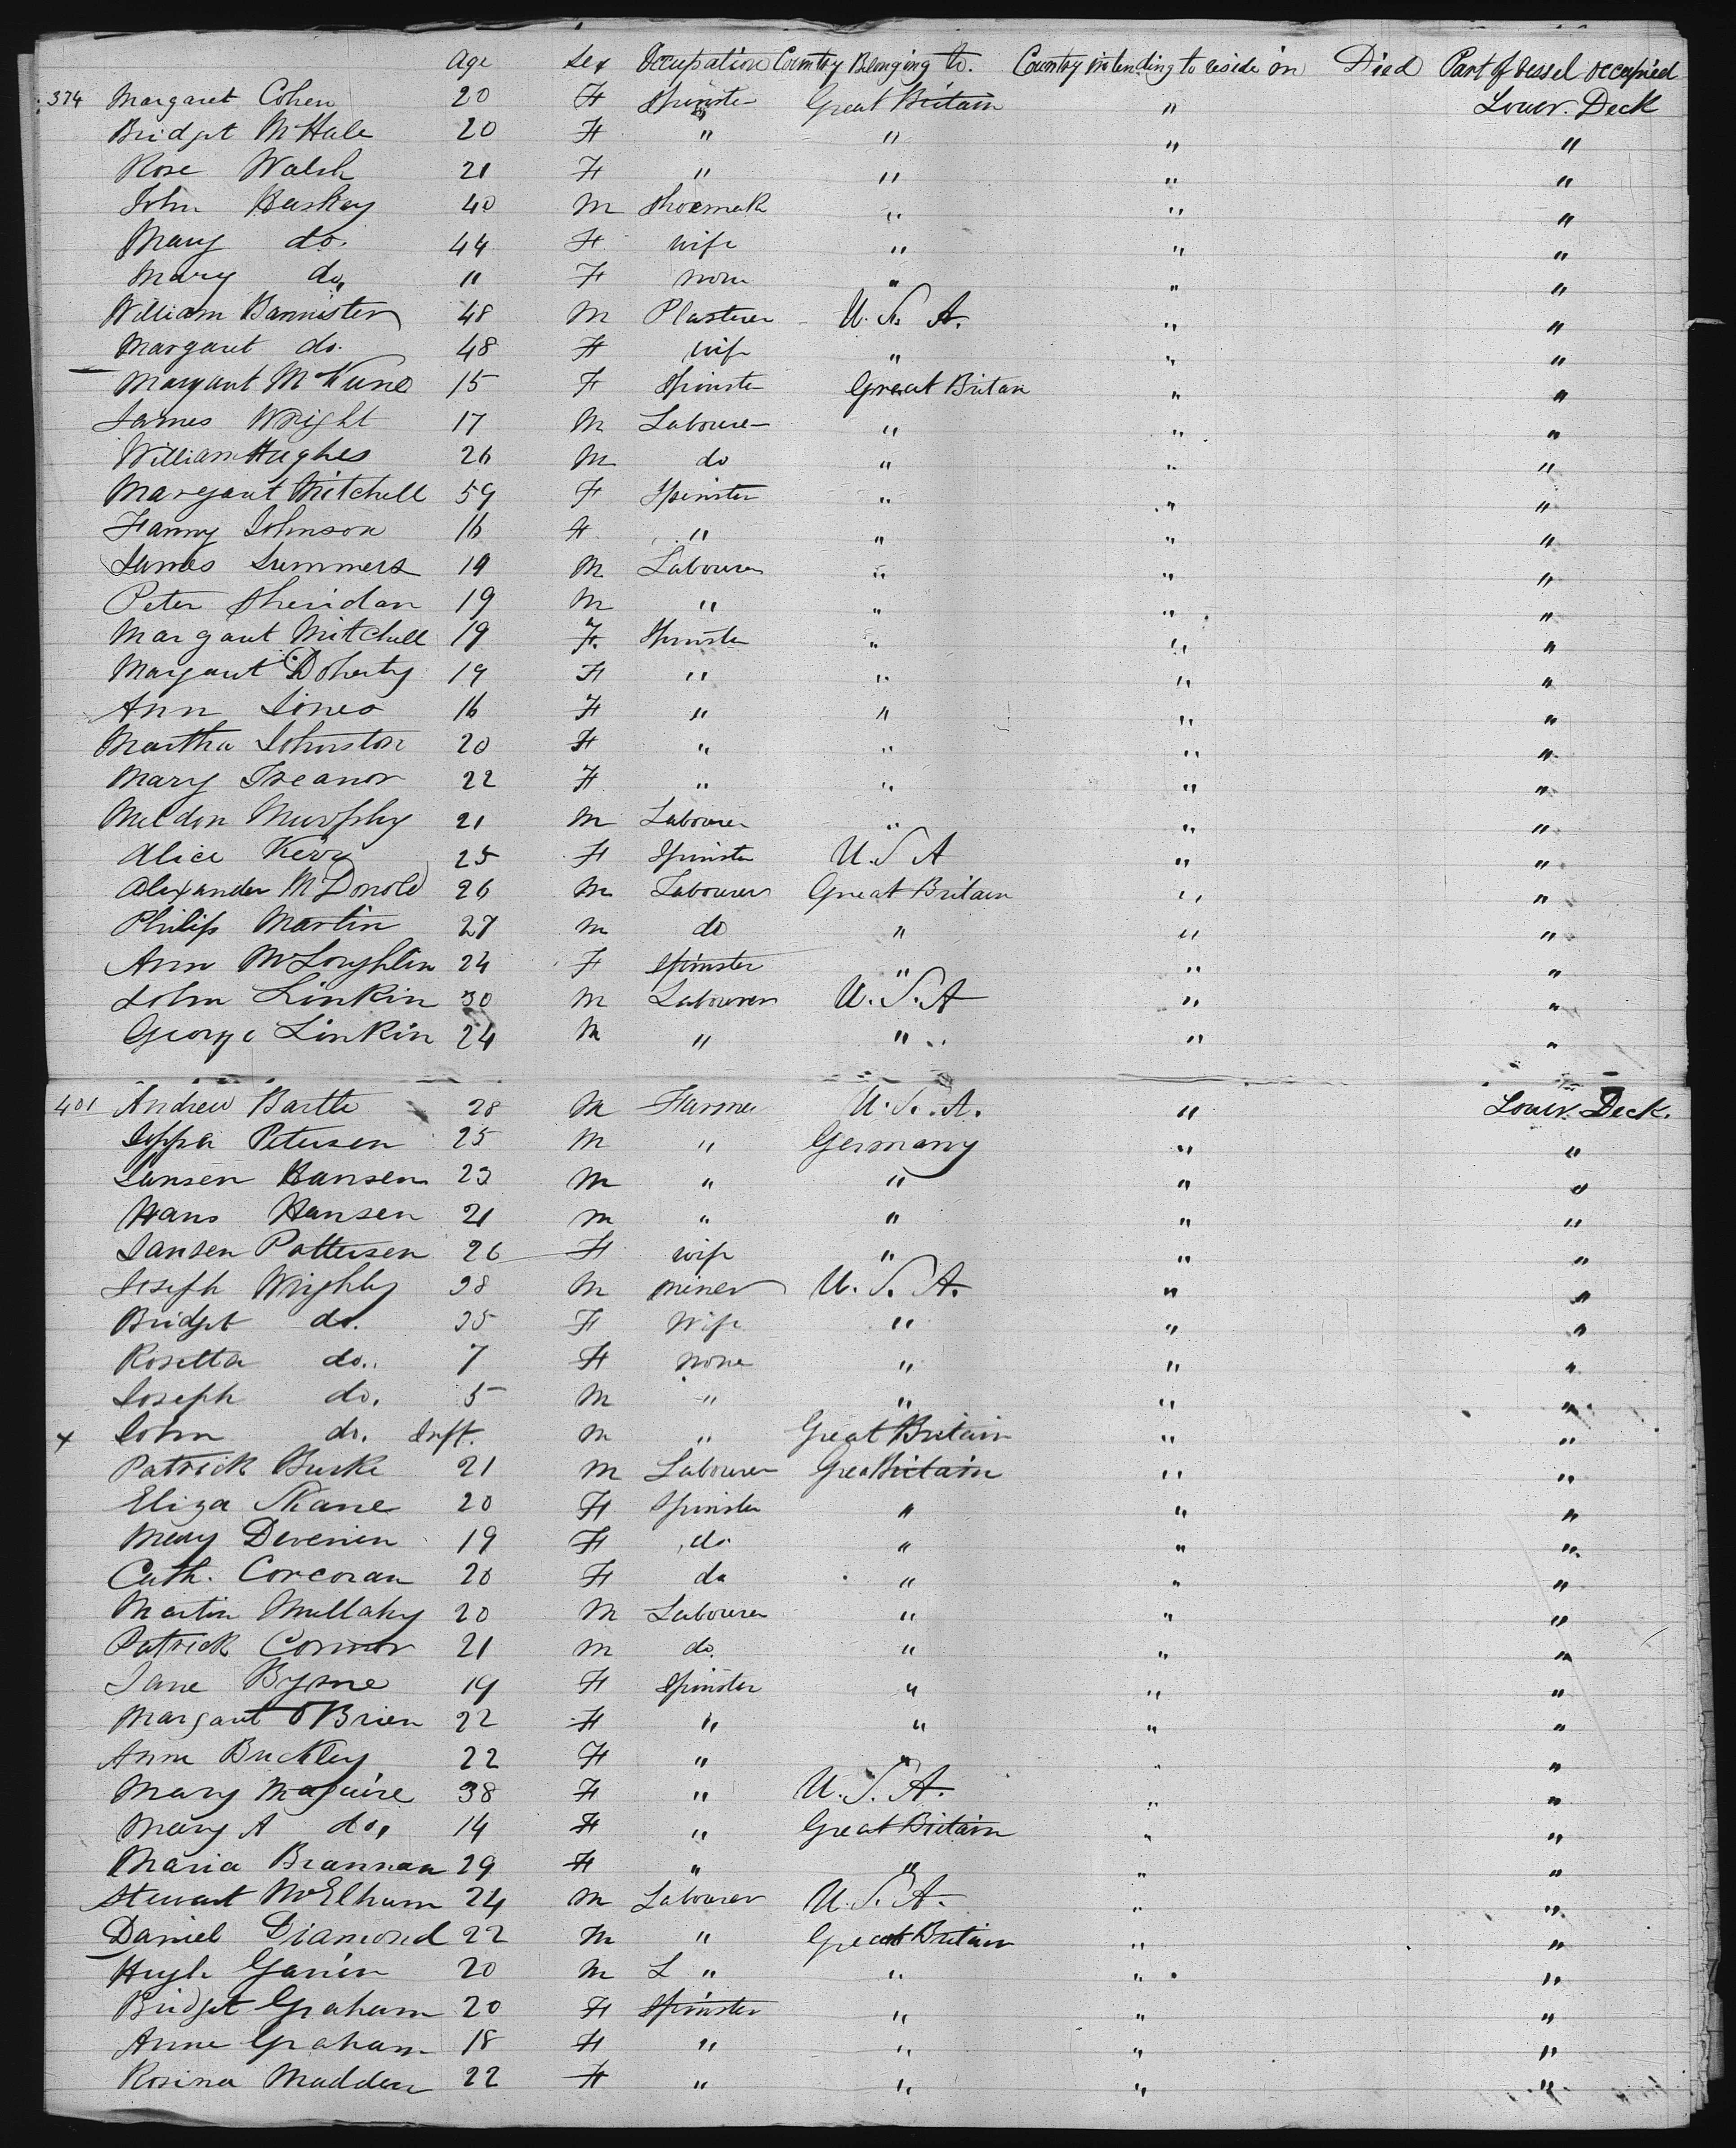 Age Sex Occupation Country Belonging to. Country intending to reside in Died Part of Vessel occupied
374 Margaret Cohen 20 F Spinster Great Britain " Lower. Deck
Bridget McHale 20 F " " " "
Rose Walsh 21 F " " " "
John Haskay 40 M Shoemak " " "
Mary do. 44 F wife " " "
Mary do, 11 F none " " "
William Bannister 48 M Plasterer U. S. A. " "
Margaret do. 48 F wife " " "
Margaret McKune 15 F Spinster Great Britan " "
James Wright 17 M Labourer " " "
William Hughes 26 M do " " "
Margaret Mitchell 59 F Spinster " " "
Fanny Johnson 16 F " " " "
James Summers 19 M Labourer " " "
Peter Sheridan 19 M " " " "
Margaret Mitchell 19 F. Spinster " " "
Margaret Doherty 19 F " " " "
Ann Jones 16 F " " " "
Martha Johnston 20 F " " " "
Mary Treanor 22 F " " " "
Meldon Murphy 21 M Labourer " " "
Alice Kerr 25 F Spinster U. S A " "
Alexander McDonold 26 M Labourer Great Britain " "
Philip Martin 27 M do " " "
Ann McLoughlin 24 F Spinster " " "
John Linkin 30 M Labourer U. S. A " "
George Linkin 24 M " " " "
401 Andrew Bartle 28 M Farmer U. S. A. " Lower. Deck.
Petersen 25 M " Germany " "
Jansen Hansen 23 M " " " "
Hans Hansen 21 M " " " "
Jansen Pattersen 26 F wife " " "
Joseph Wrighly 38 M miner U. S. A. " "
Bridget do. 35 F Wife " " "
Rosetta do.. 7 F none " " "
Joseph do. 5 M " " " "
x John do. Inft. M " Great Britain " "
Patrick Burke 21 M Labourer Grea Britain " "
Eliza Kane 20 F Spinster " " "
Mary Devenin 19 F do " " "
Cath. Corcoran 20 F do " " "
Martin Mullahy 20 M Labourer " " "
Patrick Connor 21 M do. " " "
Jane Byrne 19 F Spinster " " "
Margaret O'Brien 22 F " " " "
Anne Buckley 22 F " " " "
Mary Maguire 38 F " U. S. A. " "
Mary A do, 14 F " Great Britain " "
Maria Brannan 29 F " " " "
Stewart McElham 24 M Labourer U. S. A. " "
Daniel Diamond 22 M " Great Britain " "
Hugh Gavin 20 M L " " " "
Bridget Graham 20 F Spinster " " "
Anne Graham 18 F " " " "
Rosina Madden 22 F " " " "